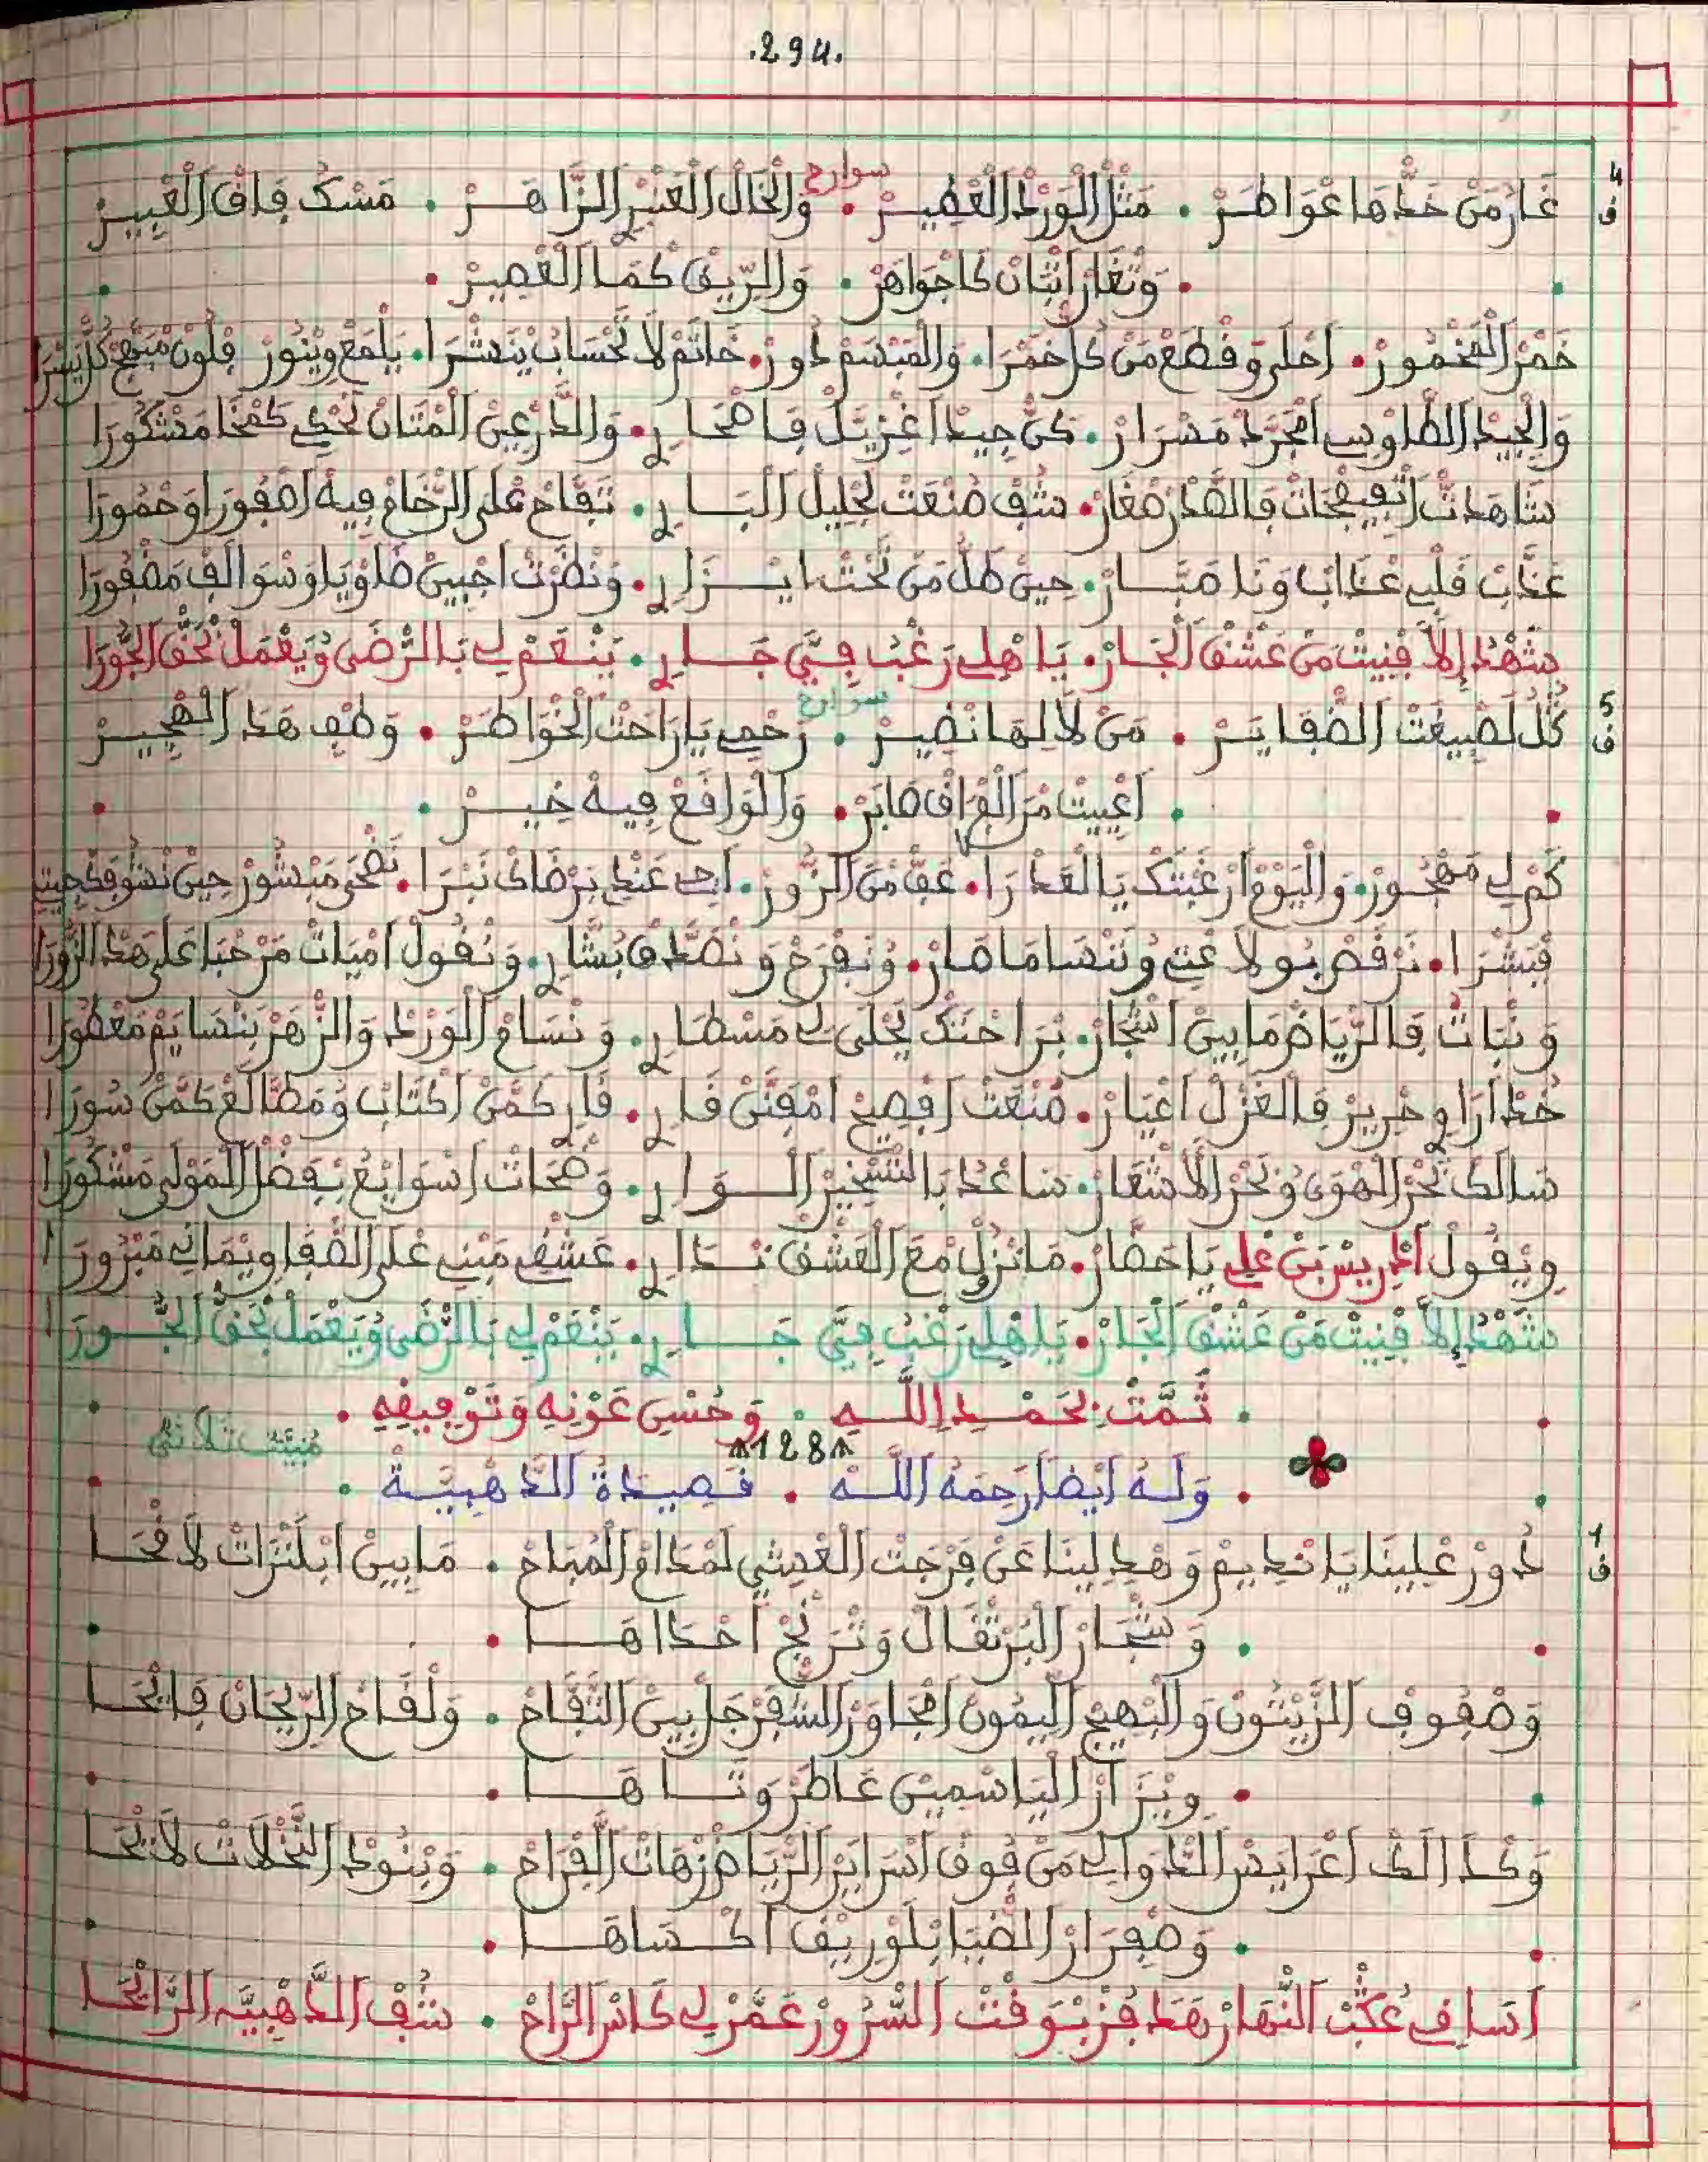 .294.
4 ف
غَارْ مَنْ خَدّهَا عْوَاطَرْ • مَثْلْ الْوَرْدْ الْعْطِيرْ • سوارح وَالْخَالْ الْعَنْبْرْ الزَّاهَرْ • مَسْكْ فَاقْ الْعْبِيرْ
• وَتْغَارْ اتْبَانْ كَاجْوَاهَرْ • وَالرِّيقْ كْمَا الْعْصِيرْ •
خَمْرْ الْمَخْمُورْ • احْلَى وَقْطَعْ مَنْ كُلْ خَمْرَا • وَالْمَبْسَمْ دُورْ • خَاتَمْ لَا تَحْسَابْ يَنْشْرَا • يَلْمَعْ وِينُورْ
وَالْجِيدْ الطَّاوِسِي امْجَرَّدْ مَسْرَارْ • كَنّْ جِيدْ اغْزِيَّلْ فَاصْحَارِي • وَالدَّرْعِينْ الْمْتَانْ تَحْكِي كَمْخَا مَشْكُورَا
شَاهَدْتْ اتْفِيفْحَاتْ فَالصّْدَرْ صْغَارْ • شُفْ صُنْعَتْ لَجْلِيلْ الْبَارِي • تَفَّاحْ عْلَى الرّْخَامْ فِيهْ اصْفُورَا وَحْمُورَا
عَذَّبْ قَلْبِي عْذَابْ وَنَا صَبَّارْ • حِينْ طَلّْ مَنْ تَحْتْ ايزَارِي • وَنْظَرْتْ اجْبِينْ ضَاوْيَا وَسْوَالَفْ مَضْفُورَا
شَهْدُ إِلَا فْنِيتْ مَنْ عَشْقْ الْجَارْ • يَا هْلِي رَغْبُ فِيَّ جَارِي • يَنْعَمْ لِي بَالرّْضَى وُيَعْمَلْ بْحَقّْ الْجُّورَا
5 ف
كُلْ لَصْبِيغَتْ الضّْفَايَرْ • مَنْ لَا لِهَا نْضِيرْ • سوارح رَحْمِي يَا رَاحْتْ الْخْوَاطَرْ • وَطْفِ هَدْ الْهْجِيرْ
• اعْيِيتْ مْنْ الْفْرَاقْ صَابَرْ • وَالْوَاقَعْ فِيهْ خِيرْ •
كَمْ لِي مَهْجُورْ • وَالْيَوْمْ ارْغَبْتَكْ يَا الْعَدْرَا • عَفّْ مَنْ الزُّورْ • اجِي عَنْدِي بَرْضَاكْ نَبْرَا • نَضْحَى مَنْشُورْ حِينْ نْشُوفَكْ جِيتِي
فْبَشْرَا • نَرْقَصْ بُولَا عْتِي وُنَنْسَا مَا صَارْ • وُنَفْرَحْ وَنْصَدَّقْ بَشَّارِي • وَنْقُولْ امْيَاتْ مَرْحْبَا عْلَى هَدْ الزُّورَا
وَنْبَاتْ فَالرِّيَاضْ مَابِينْ اشْجَارْ • بَرَاحْتَكْ يَحْلَى لِي مَسْطَارِي • وَنْسَامْ الْوَرْدْ وَالزّْهَرْ بَنْسَايَمْ مَعْطُورَا
خُدْ ارَاوِي حْرِيرْ فَالْغْزَلْ اعْيَارْ • صُنْعَتْ افْصِيحْ امْفَنَّنْ قَارِي • قَارِي كَمّنْ اكْتَابْ وُمْطَالَعْ كَمّنْ سُورَا
سَالَكْ بْحَرْ الْهْوَى وُبْحَرْ الْأَشْعَارْ • سَاعْدُ بَالتَّسْخِيرْ الْوَارِي • وَضْحَاتْ اسْوَايْعُ بْفَضْلْ الْمَوْلَى مَشْكُورَا
وِيقُولْ ادْرِيسْ بَنْ عْلِي يَا حَضَّارْ • مَا نْزُلْ مْعَ الْعَشْقْ نْدَارِي • عَشْقِي مَبْنِي عْلَى الصّْفَا وِيمَانِي مَبْرُورَا
شَهْدُ إِلَا فْنِيتْ مَنْ عَشْقْ الْجَارْ • يَا هْلِي رَغْبُ فِيَّ جَارِي • يَنْعَمْ لِي بَالرّْضَى وُيَعْمَلْ بْحَقّْ الْجُّورَا
• تَمَّتْ بِحَمْدِ اللَّهِ • وَحُسْنِ عَوْنِهِ وَتَوْفِيقِهِ •
128 مبيت ثلاثي
• وَلَهُ أَيْضًا رَحِمَهُ اللَّه • قَصِيدَةُ الذَّهْبِيَّة •
1 ف
دُورْ عْلِينَا يَا نْدِيمْ وَهْدِ لِينَا عَنْ فَرْجَتْ الْعْشِي لَمْدَامْ الْمُبَاحْ • مَابِينْ ابْلَنْزَاتْ لَاقْحَا
• وَشْجَارْ الْبُرْتْقَالْ وَتْرَنْجْ احْدَاهَا •
وَصْفُوفِ الزِّيْتُونْ وَالْبْهِيجْ الِيمُونْ امْجَاوَرْ السّْفَرْجَلْ بِينْ التّْفَّاحْ • وَلْقَاحْ الرِّيحَانْ فَايْحَا
• وِيزَارْ الْيَاسْمِينْ عَاطَرْ وَتَّاهَا •
وَكْدَالَكْ اعْرَايَسْ الدّْوَالِي مَنْ فُوقْ اسْرَايَرْ الرِّيَاضْ زْهَاتْ الْقْرَاحْ • وَبْنُودْ النَّخْلَاتْ لَايْحَا
• وَصْفِرَارْ الضّْيَا بْلُورِيقْ اكْسَاهَا •
اسَاقِي عُكْبْتْ النّْهَارْ هَدْ فُزْ بْوَقْتْ السّْرُورْ عَمَّرْ لِي كَاسْ الرَّاحْ • شُفْ الذَّهْبِيَّه الرَّايْحَا